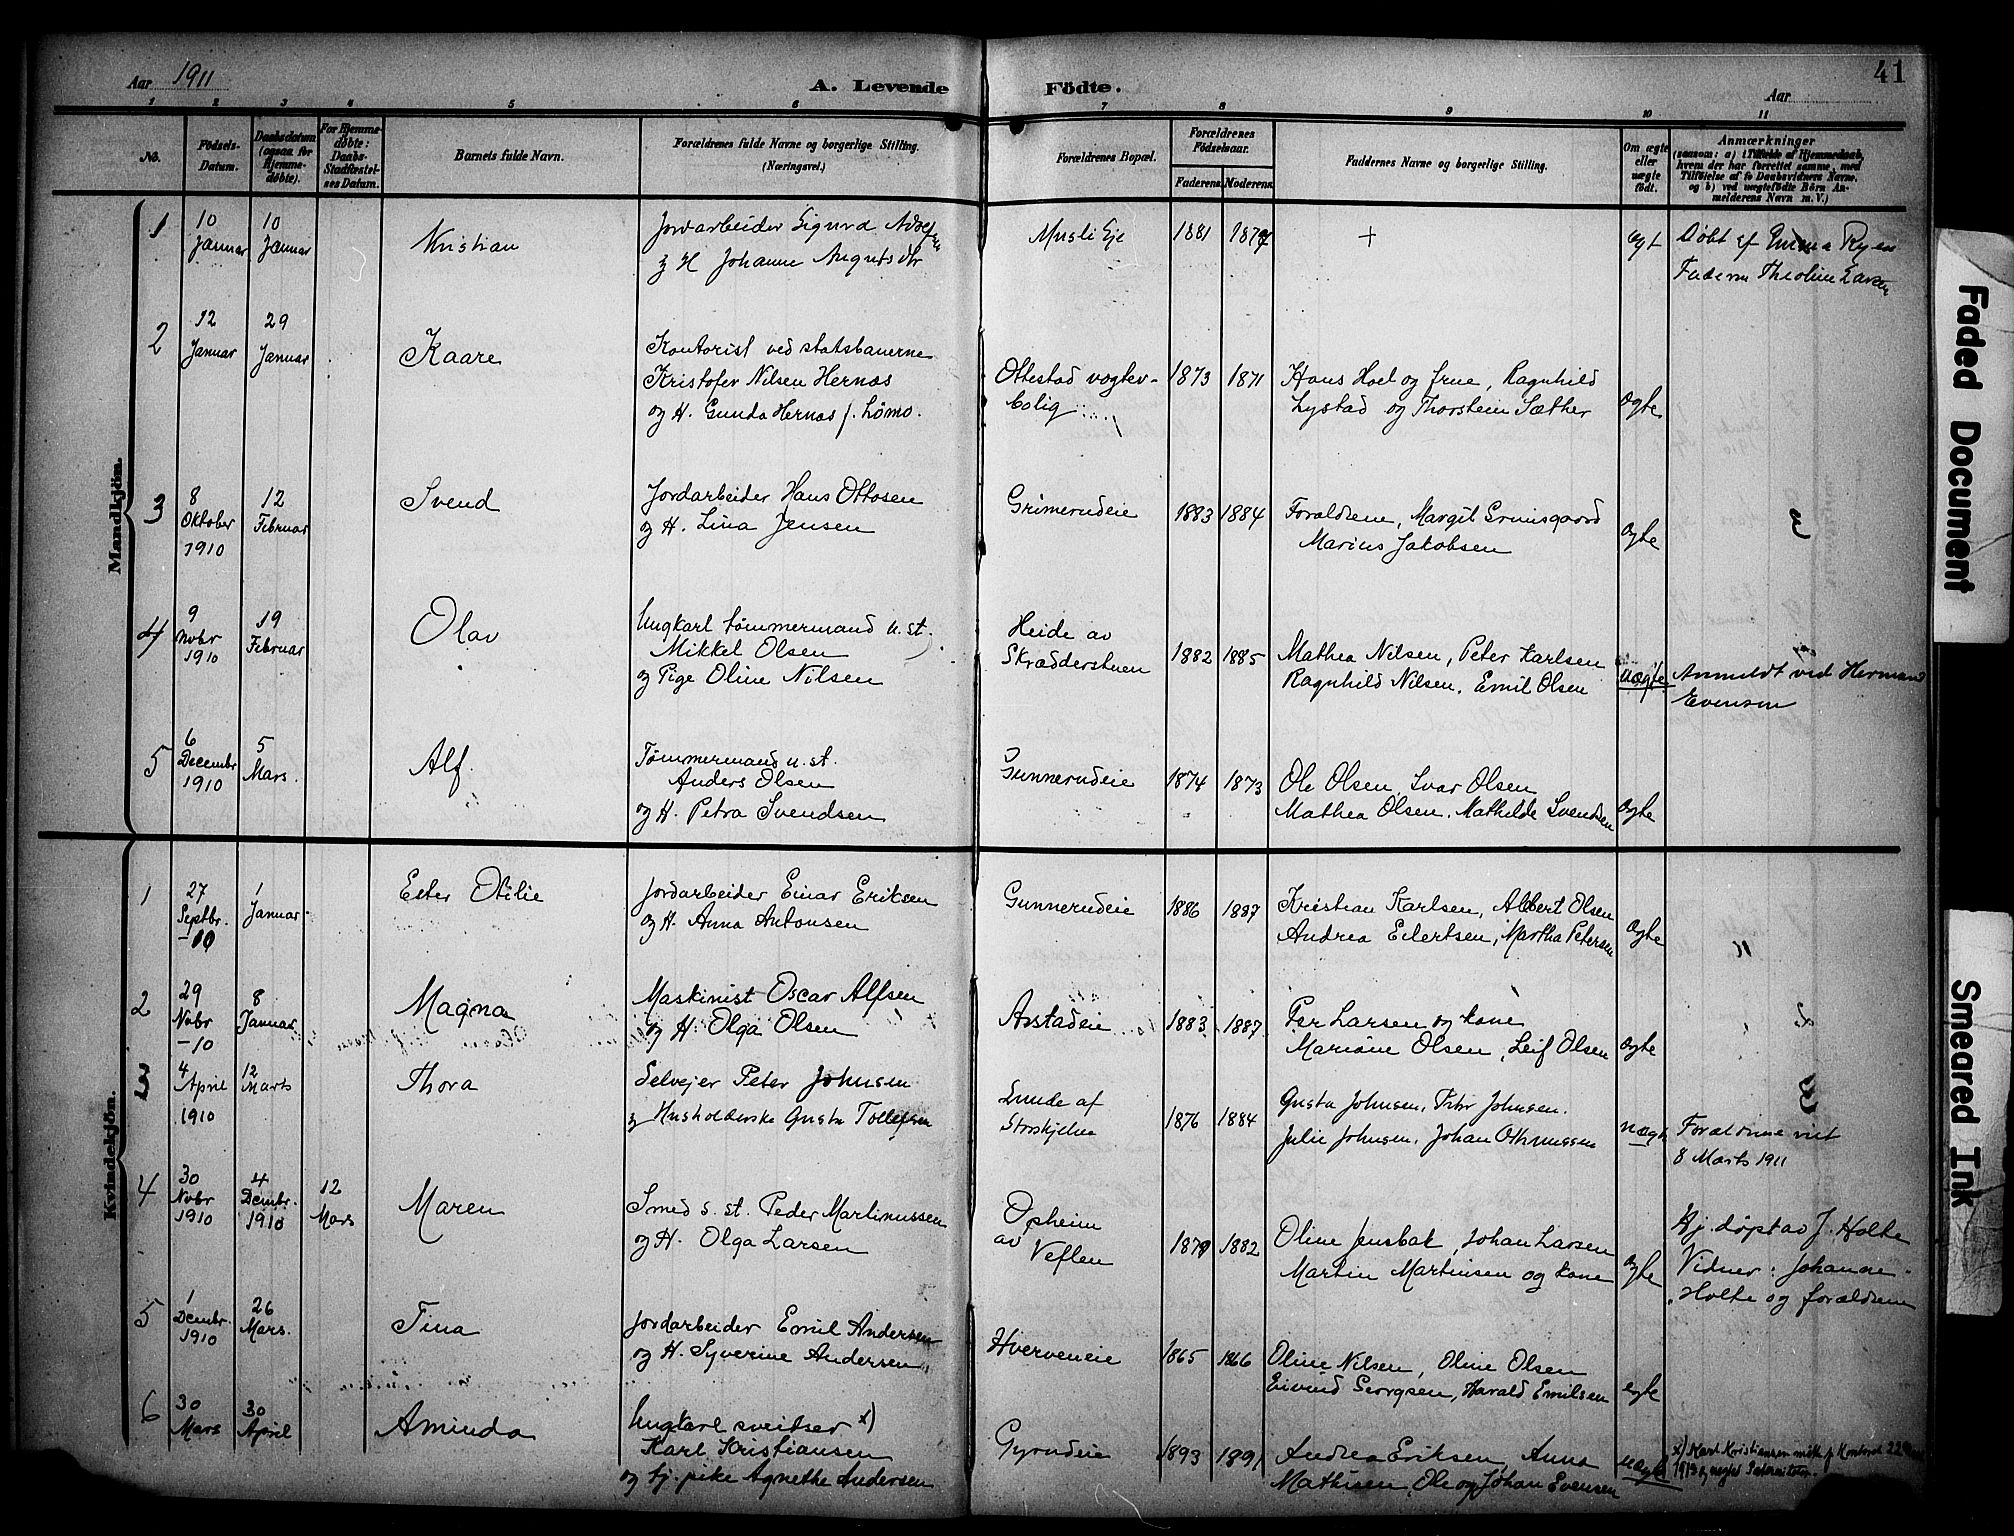 Aar 1911
A. Levende
Födte.
Aar
41
1 2 3 4 5 6 7 8 9 10 11
No.
Födsels-
Datum.
Daabsdatum
(ogsaa for
Hjemme-
döbte).
For Hjemme-
döbte:
Daabs-
Stadfæstel-
ses Datum.
Barnets fulde Navn.
Forældrenes fulde Navne og borgerlige Stilling.
(Næringsvei.)
Forældrenes Bopæl.
Forældrenes
Födselsaar.
Faderens Moderens
Faddernes Navne og borgerlige Stilling.
Om ægte
eller
uægte
födt.
Anmærkninger
(saasom: a) i Tilfælde af Hjemmedaab,
hvem der har forrettet samme, med
Tilföielse af to Daabsvidners Navne,
og b) ved uægtefödte Börn An-
melderens Navn m. V.)
Mandkjön.
1
10
Januar
10
Januar
Kristian
Jordarbeider Sigurd
H Johanne
1881
+
Døbt af Emma Ryen
Faderen Theoline Larsen
2
12
Januar
29
Januar
Kaare
Kontorist ved statsbanerne
Kristofer Nilsen Hernæs
og H. Gunda Hernæs f. Lømo.
Ottestad vogter-
bolig
1873 1871
Hans Hoel og frue, Ragnhild
Lystad og Thorstein Sæther
Ægte
3
8
Oktober
1910
12
Februar
Svend
Jordarbeider Hans Ottosen
og H. Lina Jensen
Grimerudeie
1883 1884
Forældrene, Margit Grimsgaard
Marius Jakobsen
Ægte
4
9
Novbr
1910
19
Februar
Olav
Ungkarl tømmermand u. st.
Mikkel Olsen
og Pige Oline Nilsen
Heide av
Skrædderstuen
1882 1885
Mathea Nilsen, Peter Karlsen
Ragnhild Nilsen, Emil Olsen
uægte
Anmeldt ved Herman
Evensen
5
6
Decembr
1910
5
Mars.
Alf.
Tømmermand u. st.
Anders Olsen
og H. Petra Svendsen
Gunnerudeie
1874 1873
Ole Olsen, Ivar Olsen
Mathea Olsen. Mathilde Svendsen
Ægte
Kvindekjön.
1
27
Septbr.
-10
1
Januar
Ester Otilie
Jordarbeider Einar Eriksen
og H. Anna Antonsen
Gunnerudeie
1886 1887
Kristian Karlsen, Albert Olsen
Andrea Eilertsen, Martha Petersen
Ægte
2
29
Novbr
-10
8
Januar
Magna
Maskinist Oscar Alfsen
og H. Olga Olsen
Arstadeie
1883 1887
Per Larsen og kone
Marione Olsen, Leif Olsen
Ægte
3
4
April
1910
12
Marts
Thora
Selvejer Peter Johnsen
Husholderske Gusta Tollefsen
Lunde af
1876 1884
Gusta Johnsen, Peter Johnsen.
Julie Johnsen, Johan Othmussen
uægte
Forældrene viet
8 Marts 1911
4
30
Novbr
1910
4
Decmbr.
1910
12
Mars
Maren
Smed s. st. Peder Martinussen
og H. Olga Larsen
Opheim
av
Veflen
1879 1882
Oline Jensbak, Johan Larsen
Martin Martinsen og kone
Ægte
Hj. døpt av J. Holte
Vidner: Johanne
Holte og forældrene
5
1
Decmbr.
1910
26
Mars.
Tina
Jordarbeider Emil Andersen
og H. Syverine Andersen
Hverveneie
1865 1866
Oline Nilsen, Oline Olsen
Eivind Georgsen, Harald Emilsen
egte
6
30
Mars
30
April
Aminda
Ungkarl sveitser x)
Karl Kristiansen
og tj. pike Agnethe Andersen
Gyrudeie
1893 1891
Andrea Eriksen, Anna
Mathisen, Ole og Johan Evensen
uægte
x) Karl Kristiansen
Faded Document
Smeared Ink